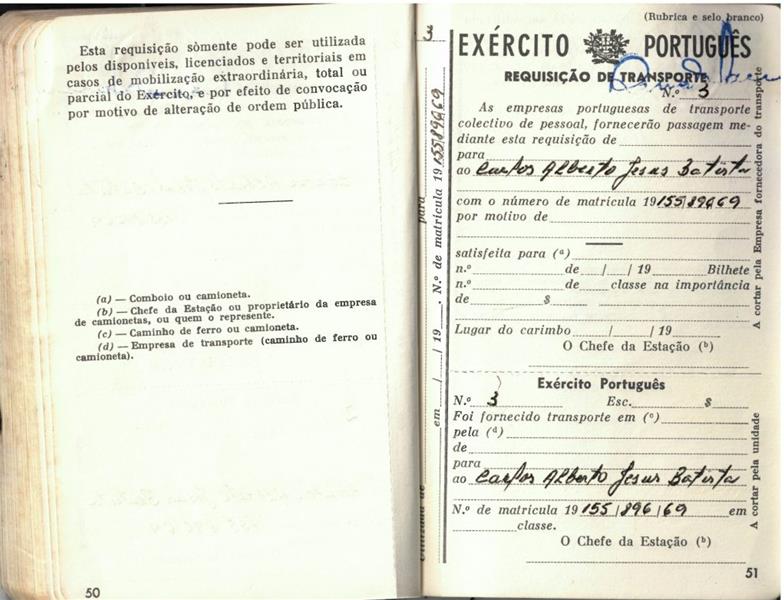 Esta requisição sòmente pode ser utilizada
pelos disponíveis, licenciados e territoriais em
casos de mobilização extraordinária, total ou
parcial do Exército, e por efeito de convocação
por motivo de alteração de ordem pública.
(a) — Comboio ou camioneta.
(b) — Chefe da Estação ou proprietário da empresa
de camionetas, ou quem o represente.
(c) — Caminho de ferro ou camioneta.
(d) — Empresa de transporte (caminho de ferro ou
camioneta).
50
3
para
em / / 19 . N.º de matrícula 19 155/896/69
(Rubrica e selo branco)
EXÉRCITO PORTUGUÊS
REQUISIÇÃO DE TRANSPORTE
N.º 3
As empresas portuguesas de transporte
colectivo de pessoal, fornecerão passagem me-
diante esta requisição de
para
ao Carlos Alberto Jesus Batista
com o número de matrícula 19 155/896/69
por motivo de
satisfeita para (a)
n.º de / / 19 Bilhete
n.º de classe na importância
de $
Lugar do carimbo / / 19
O Chefe da Estação (b)
A cortar pela Empresa fornecedora do transporte
Exército Português
N.º 3 Esc. $
Foi fornecido transporte em (c)
pela (d)
de
para
ao Carlos Alberto Jesus Batista
N.º de matrícula 19 155/896/69 em
classe.
O Chefe da Estação (b)
A cortar pela unidade
51